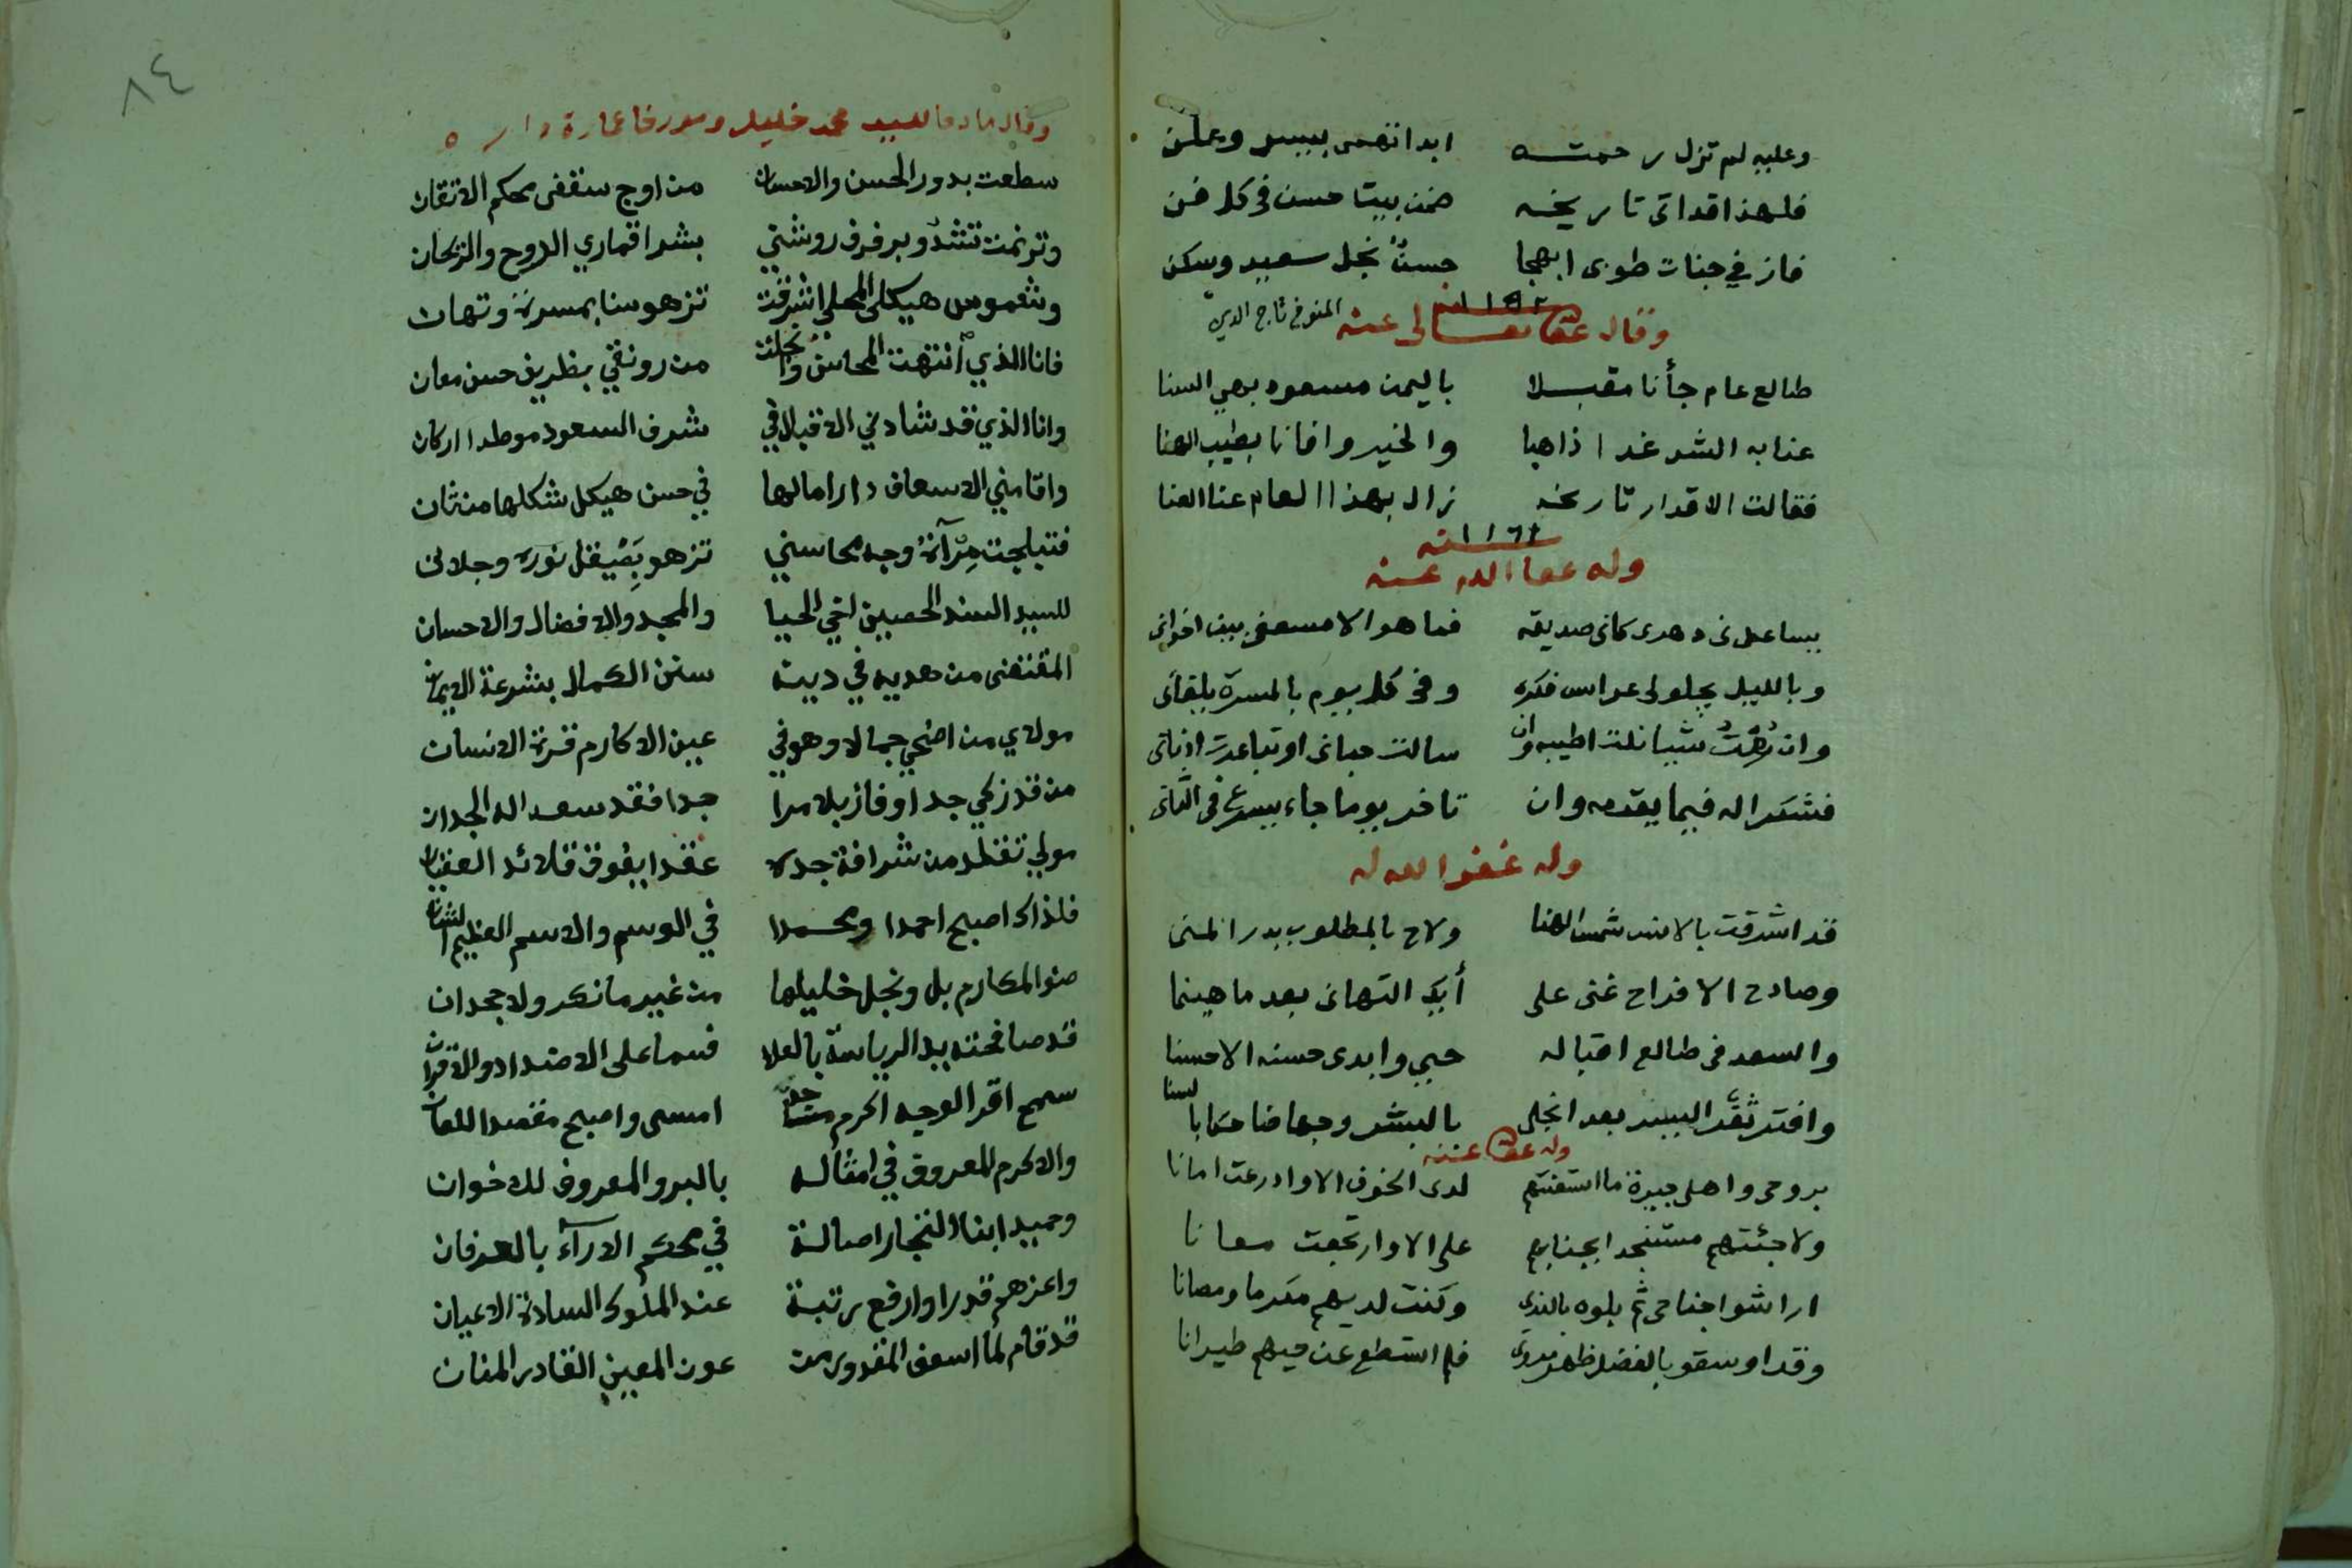 وعليه لم تزل رحمته ابدا تهمى بسر وعلن
فلهذا قد اتى تاريخه ضمن بيتا حسن فى كل فن
فاز في جنات طوبى ابهجا حسنٌ نجل سعيد وسكن
وقال عفا تعالى عنه المتوفى تاج الدين
طالع عام جأنا مقبلا باليمن مسعود بهي السنا
عنا به الشر غدا ذاهبا والخير وافانا بطيب الهنا
فقالت الاقدار تاريخه زال بهذا العام عنا العنا
١١٦٢
وله عفا الله عنه
يساعدنى دهرى كانى صديقه فما هو الا مسعفى بين اخوانى
وبالليل يجلو لى عرايس فكره وفى كل يوم بالمسرة يلقانى
وان رمت شيا نلت اطيبه وان سالت حبانى او تباعدت
فشكرا له فيما يقدمه وان تاخر يوما جاء يسرع فى الثانى
وله غفر الله له
قد اشرقت بالانس شمس الهنا ولاح بالمطلوب بدر المنى
وصادح الافراح غنى على أيك التهانى بعد ما هينما
والسعد فى طالع اقباله حيي وابدى حسنه الاحسنا
وافتر ثغر البشر بعد انجلى بالبشر وجها ضاحكا بالسنا
وله عفا عنه
بروحى واهلى جيرة ما استغثتهم لدى الخوف الا وادرعت امانا
ولا جئتهم مستنجدا بجنابهم على الا وارتجعت معانا
اراشوا جناحى ثم بلوه بالندى وكنت لديهم مكرما ومصانا
وقد اوسقو بالفضل ظهر فلم استطع عن حيهم طيرانا
٨٤
وقال مادحا للسيد محمد خليل ومورخا عمارة دار ه
سطعت بدور الحسن والاحسان من اوج سقفى محكم الاتقان
وترنمت تشدو برفرف روشني بشرا قماري الدوح والريحان
وشموس هيكلي المحلى اشرقت تزهو سنا بمسرة وتهان
فانا الذي انتهت المحاسن وانجلت من رونقي بظريف حسن معان
وانا الذي قد شادني الاقبال في شرف السعود موطدا اركان
واقامني الاسعاف دارا مالها في حسن هيكل شكلها من ثان
فتبلجت مرآة وجه محاسني تزهو بصيقل نوره وجلانى
للسيد السند الحصين اخي الحيا والمجد والافضال والاحسان
المقتفى من هديه في دينه سنن الكمال بشرعة الايمان
مولاي من اضحى جمالا وهو في عين الاكارم قرة الانسان
من قد زكي جدا وفاز بلا مرا جدا فقد سعد له الجدان
مولي تقلد من شرافة جده عقدا يفوق قلائد العقيان
فلذاك اصبح احمدا ومحمدا في الوسم والاسم العظيم الشان
صنو المكارم بل ونجل خليلها من غير ما نكر ولا جحدان
قد صافحته يد الرياسة بالعلا فسما على الاضداد والاقران
سمح اقر الوجه اكرم امسى واصبح مقصدا للعان
والاكرم المعروف في امثاله بالبر والمعروف للاخوان
وحيد ابنا النجار اصالة في محكم الارآء بالعرفان
واعزهم قدرا وارفع رتبة عند الملوك السادة الاعيان
قد قام لما اسعف المقدور من عون المعين القادر المنان